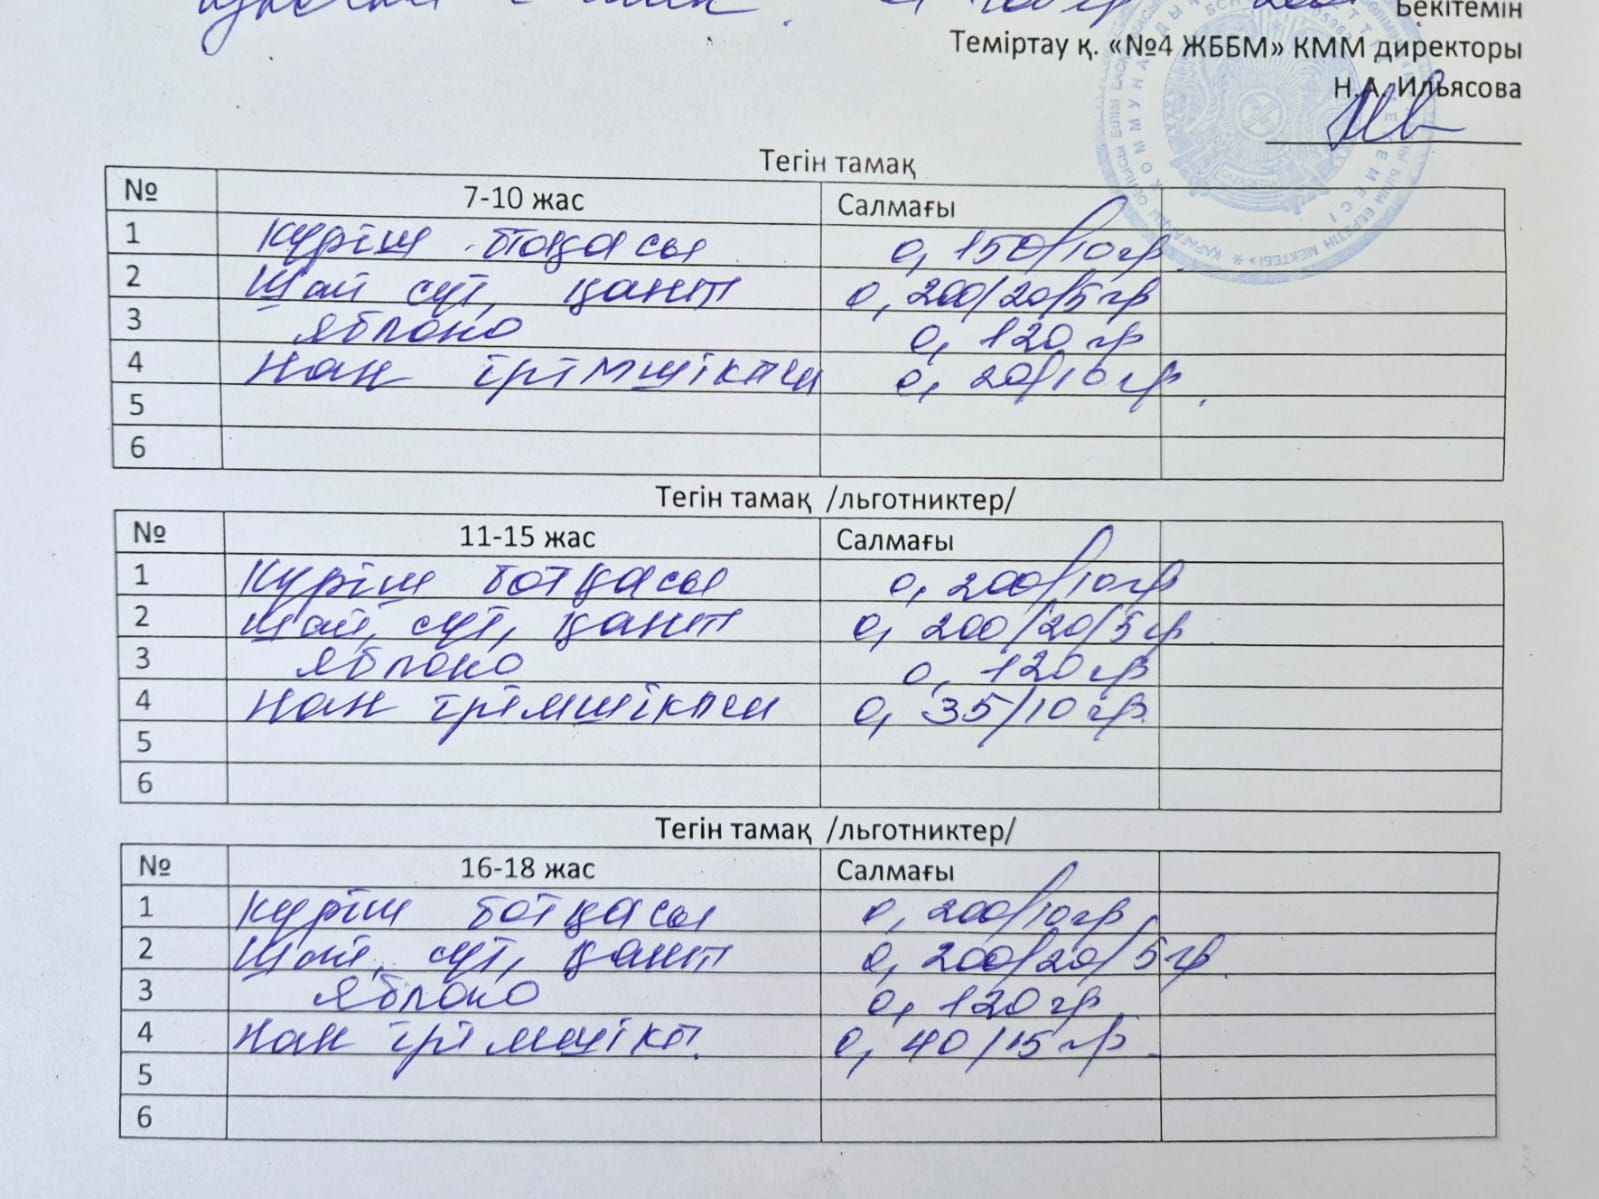 Бекітемін
Теміртау қ. «№4 ЖББМ» КММ директоры
Н.А. Ильясова
Тегін тамақ
№ 7-10 жас Салмағы
1 күріш ботқасы 0, 150/10гр
2 Шай сүт, қант 0, 200/20/5гр
3 яблоко 0, 120 гр
4 нан ірімшікпен 0, 20/10 гр
5
6
Тегін тамақ /льготниктер/
№ 11-15 жас Салмағы
1 күріш ботқасы 0, 200/10гр
2 Шай, сүт, қант 0, 200/20/5 гр
3 яблоко 0, 120гр
4 нан ірімшікпен 0, 35/10 гр
5
6
Тегін тамақ /льготниктер/
№ 16-18 жас Салмағы
1 күріш ботқасы 0, 200/10гр
2 Шай, сүт, қант 0, 200/20/5гр
3 яблоко 0, 120гр
4 нан ірімшікп. 0, 40/15 гр
5
6